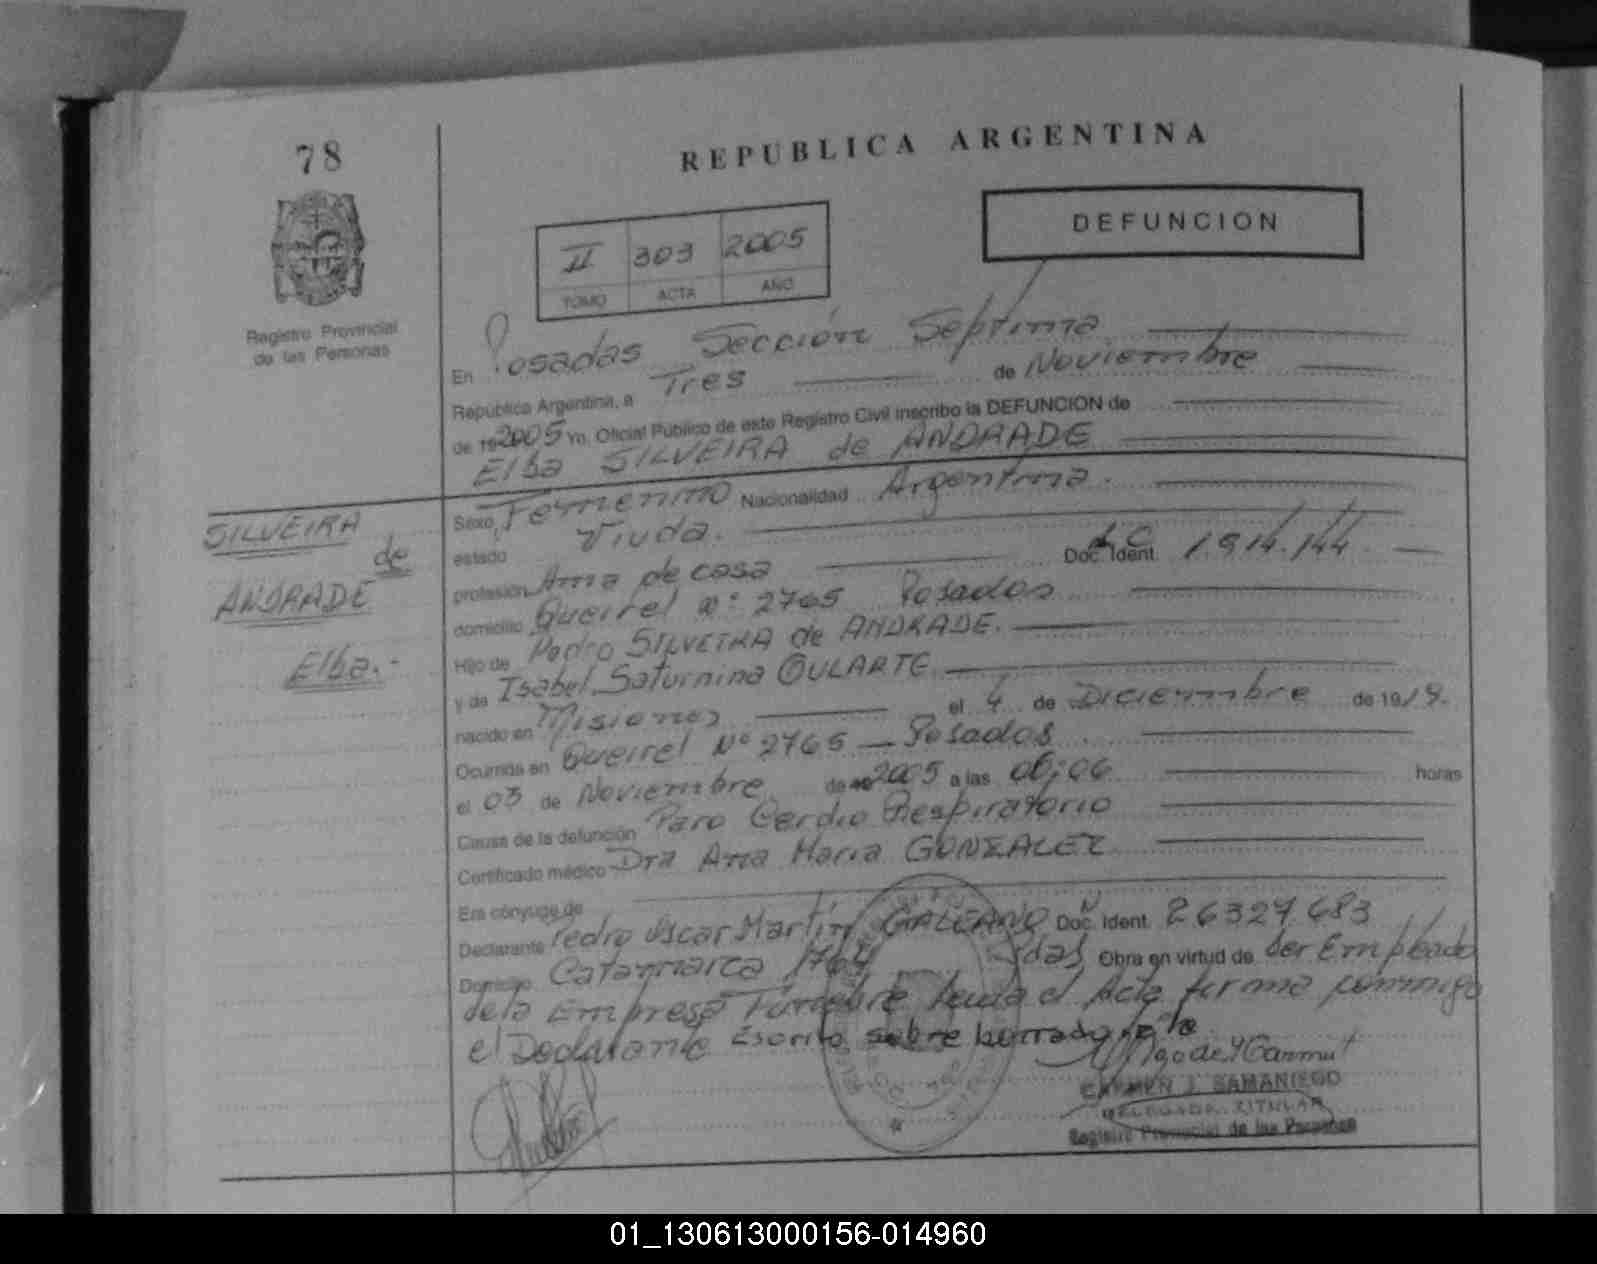 78
REPUBLICA ARGENTINA
DEFUNCION
II 303 2005
TOMO ACTA AÑO
Registro Provincial
de las Personas
En Posadas Sección Septima
República Argentina, a Tres de Noviembre
de 19 2005 Yo, Oficial Público de este Registro Civil inscribo la DEFUNCION de
Elba SILVEIRA de ANDRADE
SILVEIRA
de
ANDRADE
Elba.-
Sexo Femenino Nacionalidad Argentina.
estado Viuda.
profesión Ama de casa Doc. Ident. LC 1.914.144
domicilio Queirel nº 2765 Posadas
Hijo de Pedro SILVEIRA de ANDRADE.
y de Isabel Saturnina OULARTE
nacido en Misiones el 4 de Diciembre de 1919.
Ocurrida en Queirel Nº 2765 — Posadas
el 03 de Noviembre de 19 2005 a las 06:06 horas
Causa de la defunción Paro Cardio Respiratorio
Certificado médico Dra Ana Maria GONZALEZ
Era cónyuge de
Declarante Pedro Oscar Martín GALEANO Doc. Ident. 26327.683
Domicilio Catamarca 1764 Pdas Obra en virtud de ser Empleado
de la Empresa Fúnebre Leida el Acta firma conmigo
el Declarante Escrito sobre borrado
CARMEN J. SAMANIEGO
DELEGADA TITULAR
Registro Provincial de las Personas
01_130613000156-014960